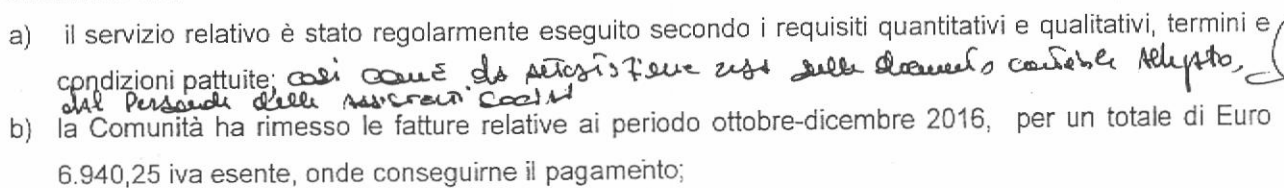 a) il servizio relativo è stato regolarmente eseguito secondo i requisiti quantitativi e qualitativi, termini e
condizioni pattuite; così come da attestazione resa sulle documento contabile allegato,
dal Personale delle Assistenti Sociali
b) la Comunità ha rimesso le fatture relative ai periodo ottobre-dicembre 2016, per un totale di Euro
6.940,25 iva esente, onde conseguirne il pagamento;